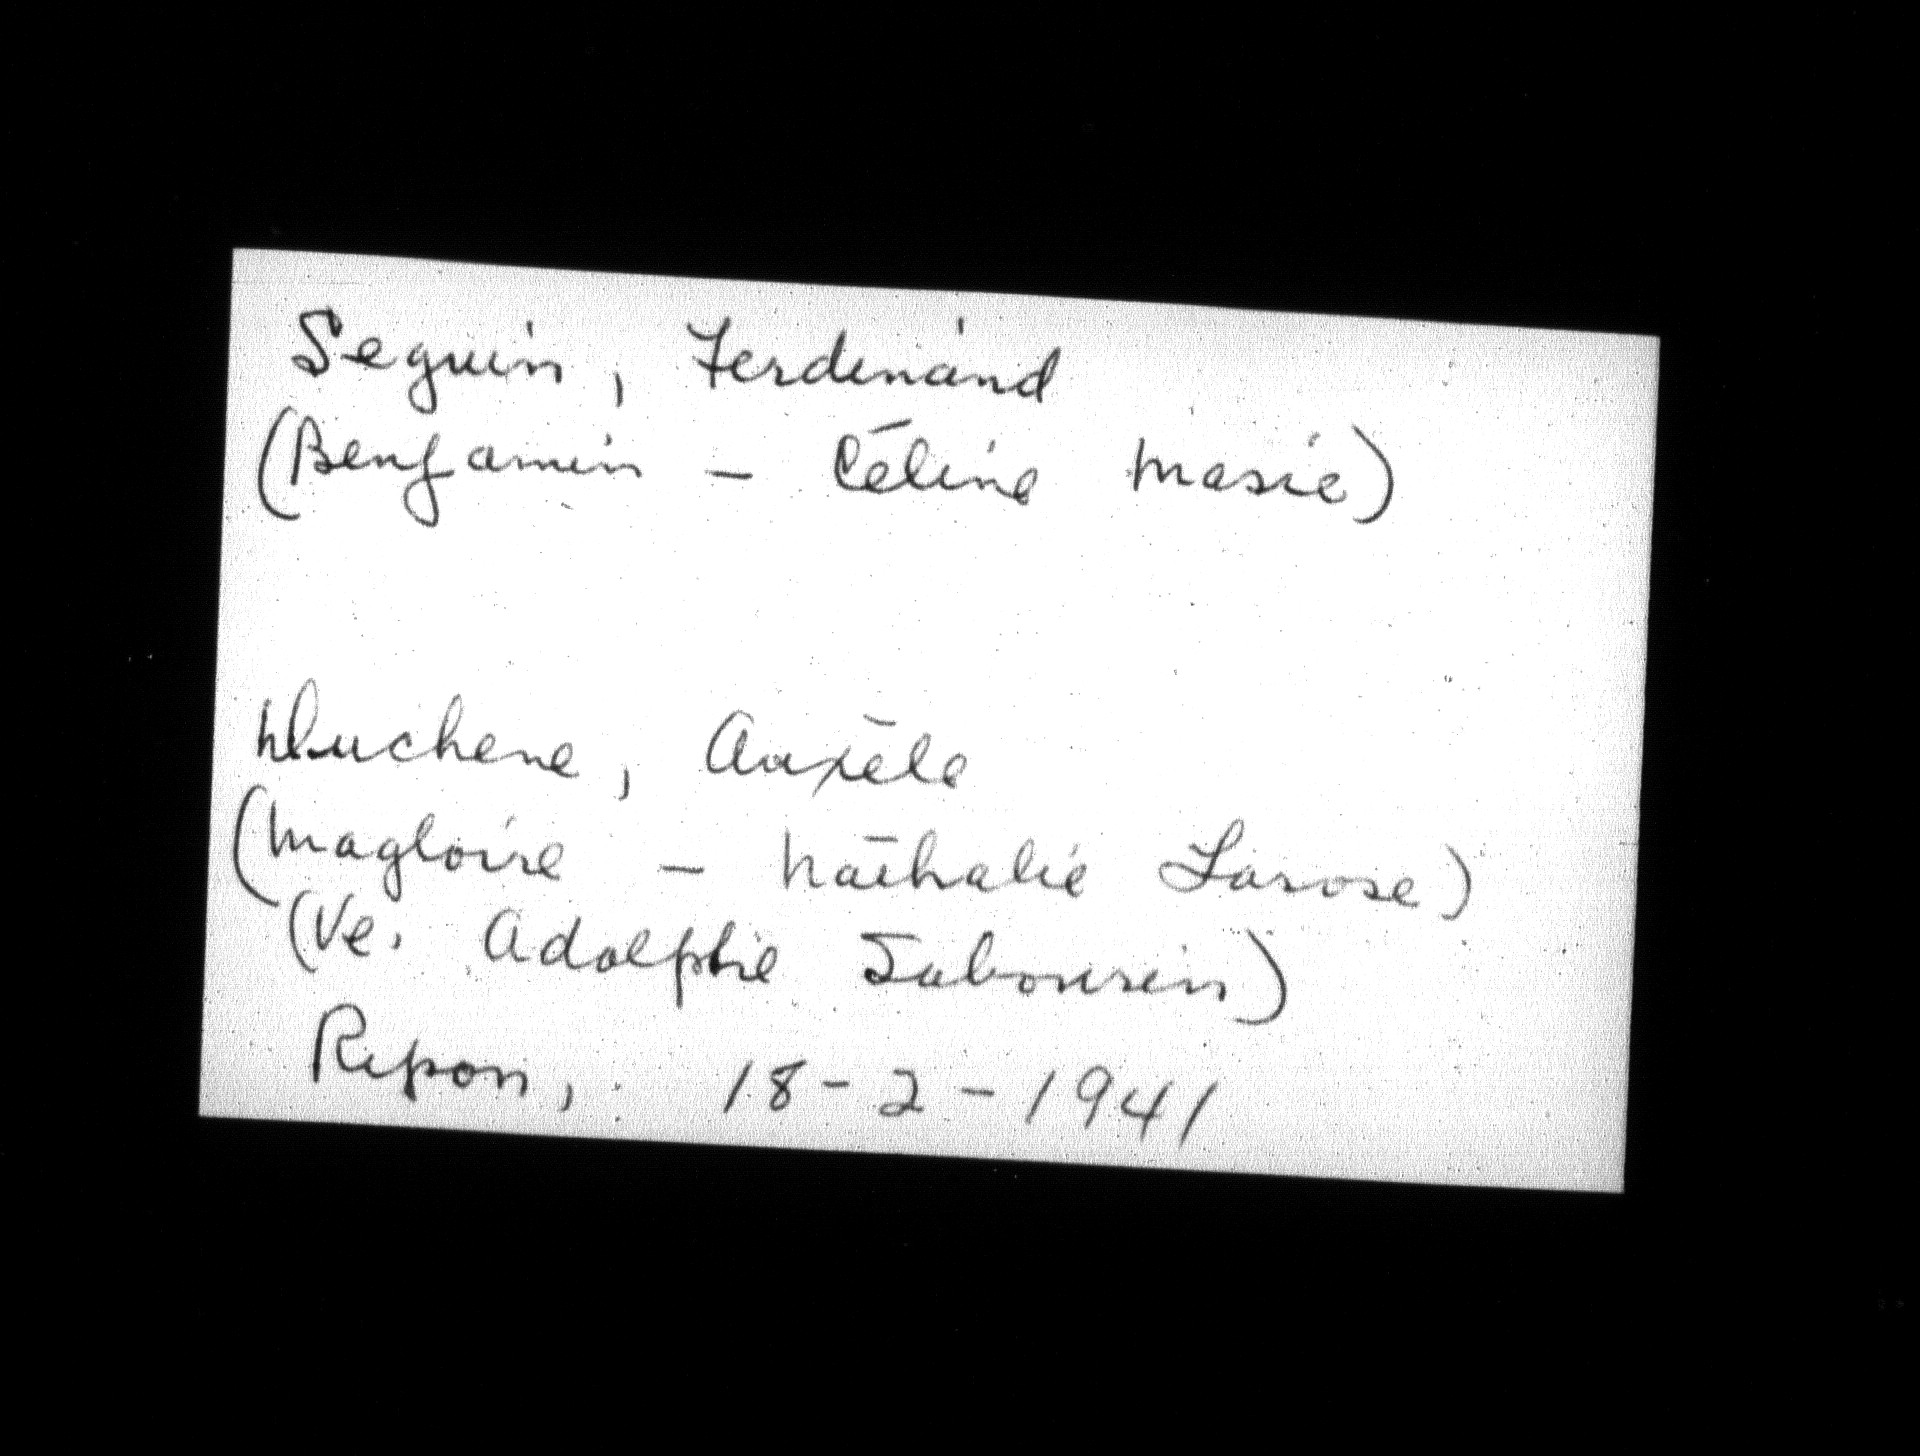 Seguin, Ferdinand
(Benjamin - Céline Masie)
Duchene, Auxèle
(Magloire - Nathalie Larose)
(Ve. Adolphe Sabourin)
Ripon, 18-2-1941